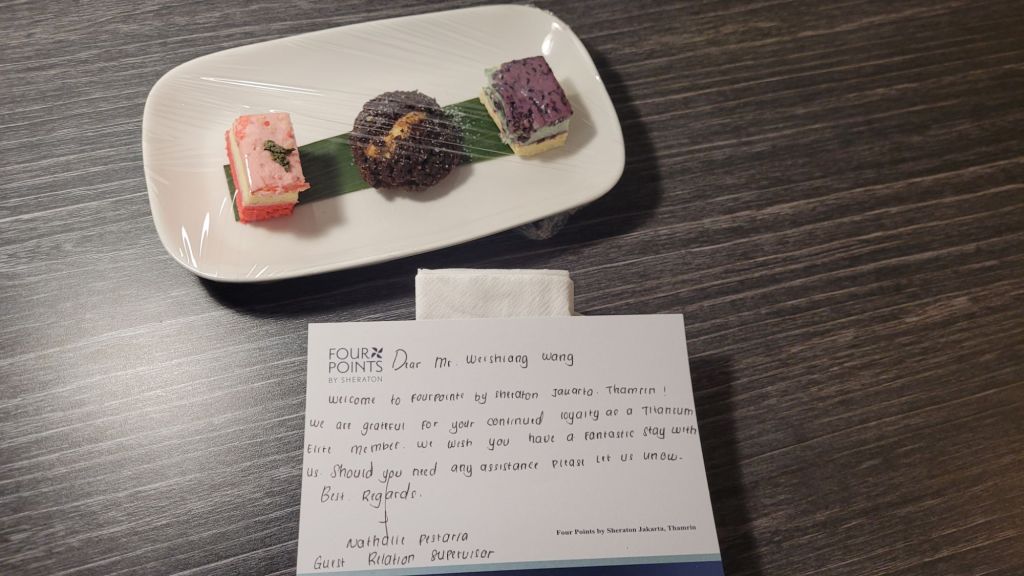 FOUR
POINTS
BY SHERATON
Dear Mr. Weishiang Wang
Welcome to Fourpoints by Sheraton Jakarta. Thamrin !
We are grateful for your continued loyalty as a Titanium
Elite member. We wish you have a fantastic stay with
us. Should you need any assistance please let us know.
Best Regards.
Nathalie Pestaria
Guest Relation Supervisor
Four Points by Sheraton Jakarta, Thamrin